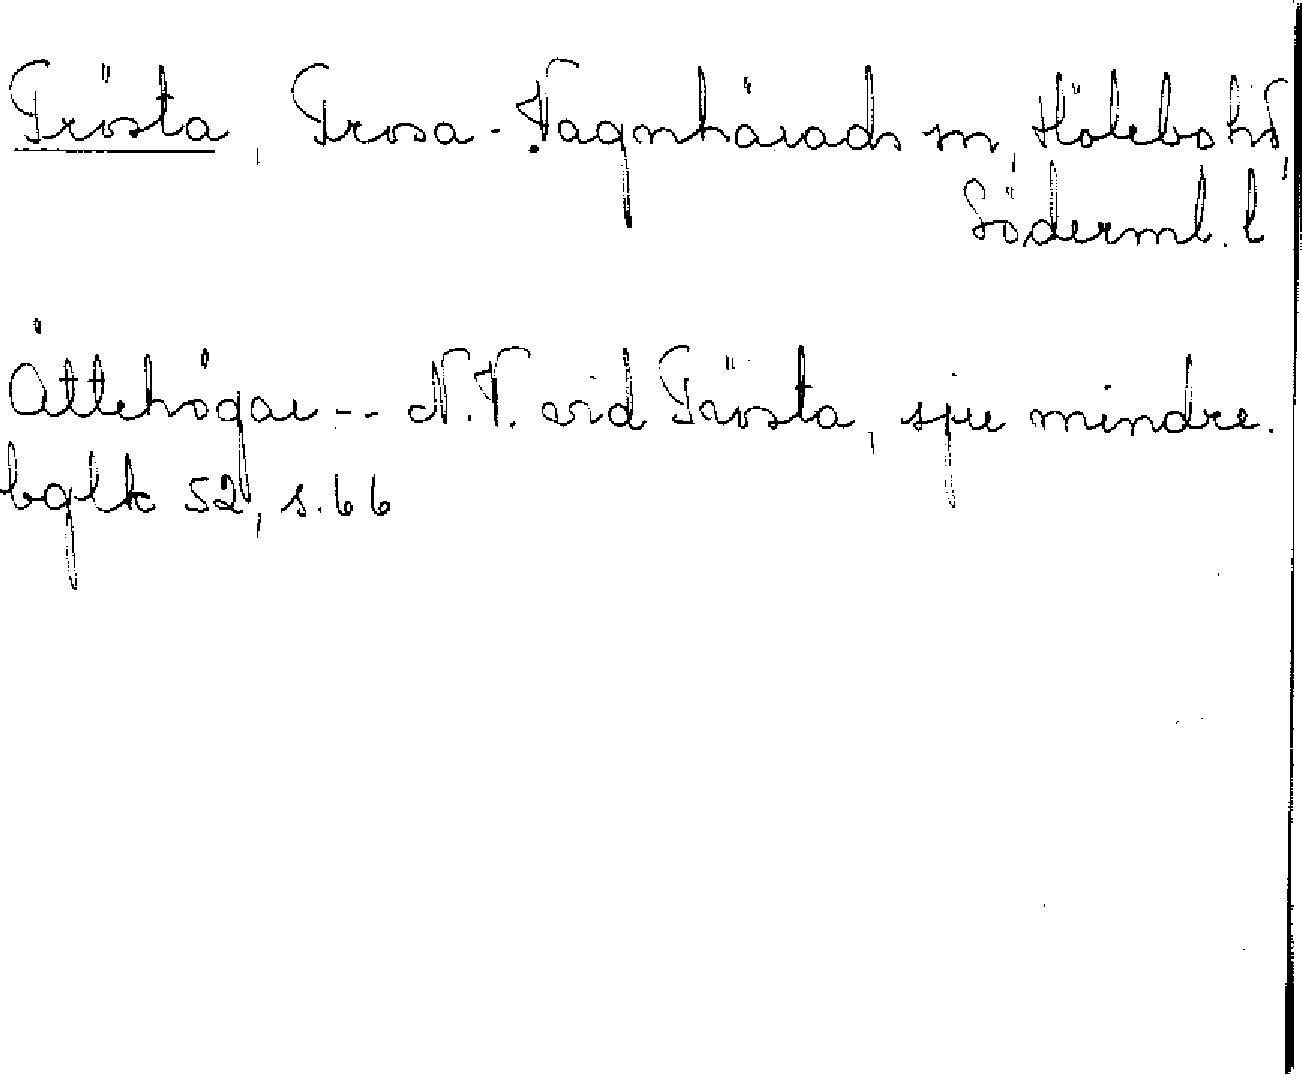 Trösta, Trosa-Vagnhärads sn, Hölebo hd,
Söderml. l
Ättehögar -- N.V. vid Trösta, sju mindre.
bglk 52, s. 66